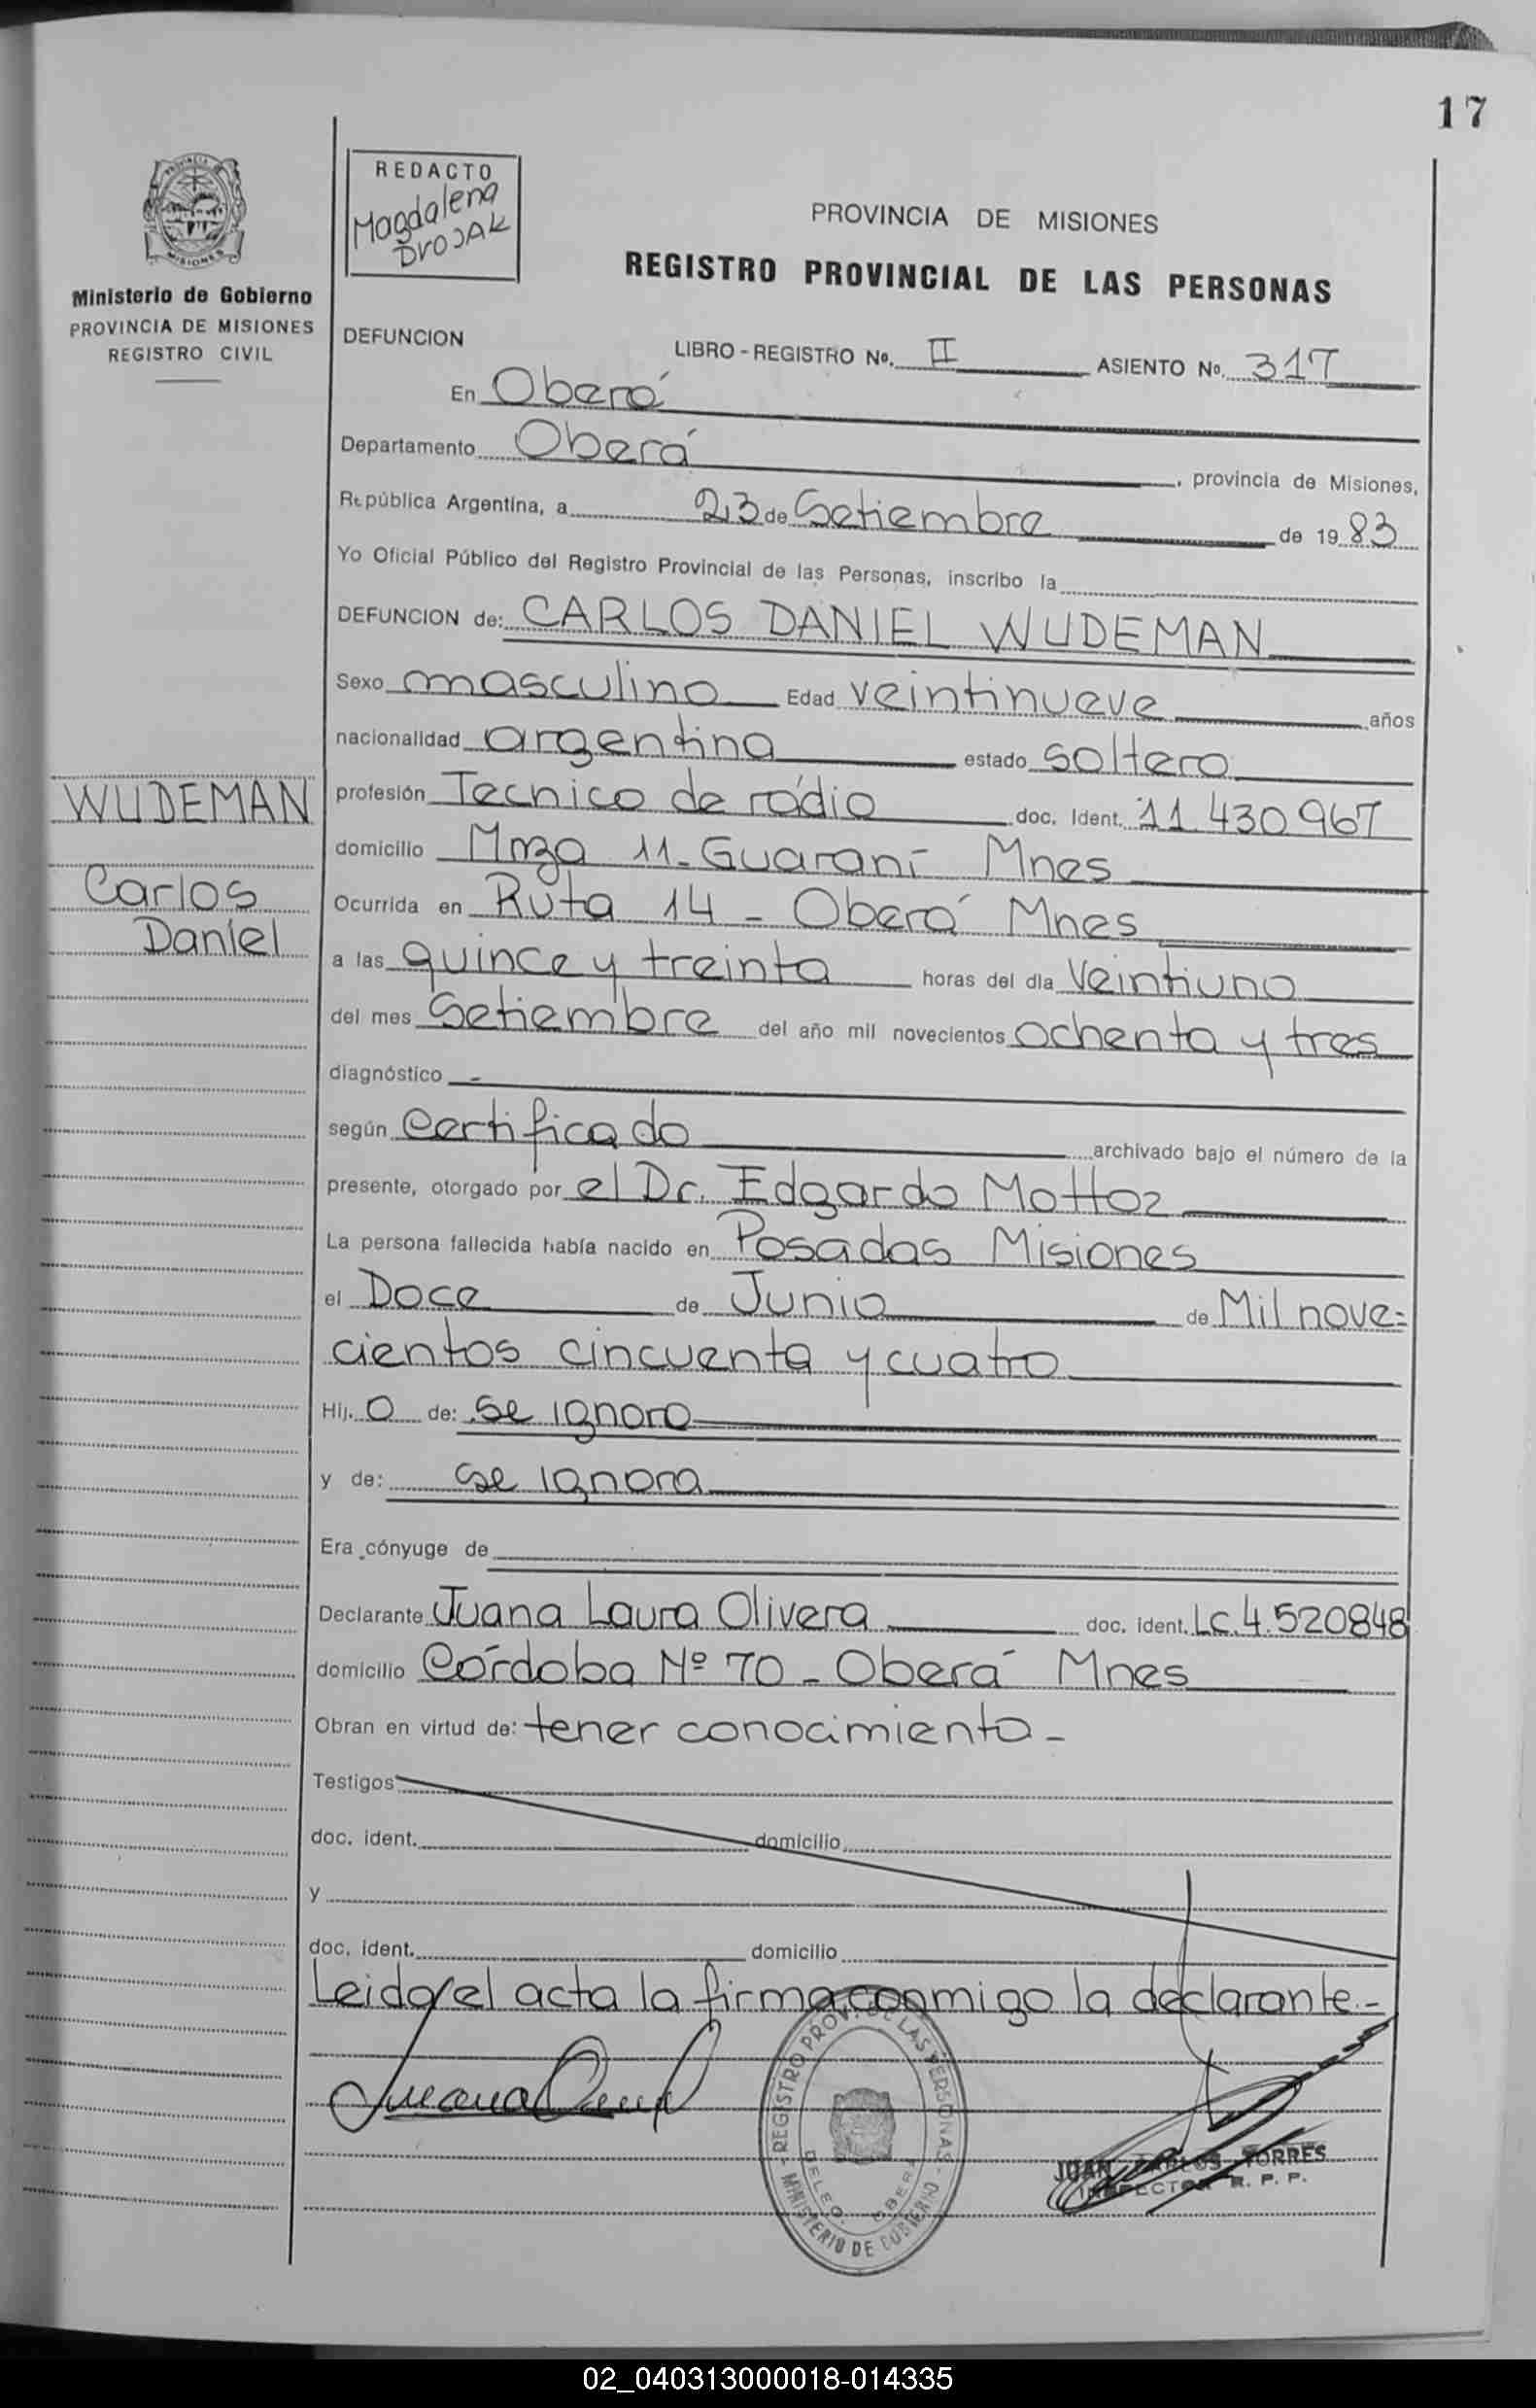 17
PROVINCIA DE
MISIONES
Ministerio de Gobierno
PROVINCIA DE MISIONES
REGISTRO CIVIL
REDACTO
Magdalena
DroJAK
PROVINCIA DE MISIONES
REGISTRO PROVINCIAL DE LAS PERSONAS
DEFUNCION
LIBRO - REGISTRO Nº. II ASIENTO Nº. 317
En Oberá
Departamento Oberá, provincia de Misiones,
República Argentina, a 23 de Setiembre de 1983
Yo Oficial Público del Registro Provincial de las Personas, inscribo la
DEFUNCION de: CARLOS DANIEL WUDEMAN
Sexo masculino Edad veintinueve años
nacionalidad argentina estado soltero
WUDEMAN
Carlos
Daniel
profesión Tecnico de rádio doc. Ident. 11.430967
domicilio Mnza 11-Guaraní Mnes
Ocurrida en Ruta 14 - Oberá Mnes
a las quince y treinta horas del día Veintiuno
del mes Setiembre del año mil novecientos ochenta y tres
diagnóstico -
según certificado archivado bajo el número de la
presente, otorgado por el Dr. Edgardo Mottoz
La persona fallecida había nacido en Posadas Misiones
el Doce de Junio de Mil nove=
cientos cincuenta y cuatro
Hij. o de: se ignora
y de: se ignora
Era cónyuge de
Declarante Juana Laura Olivera doc. ident. LC.4.520848
domicilio Córdoba Nº 70 - Oberá Mnes
Obran en virtud de: tener conocimiento -
Testigos
doc. ident. domicilio
y
doc. ident. domicilio
Leida el acta la firma conmigo la declarante.-
REGISTRO PROV. DE LAS PERSONAS - MINISTERIO DE GOBIERNO -
DELEG. OBERA
JUAN CARLOS TORRES
INSPECTOR R. P. P.
02_040313000018-014335